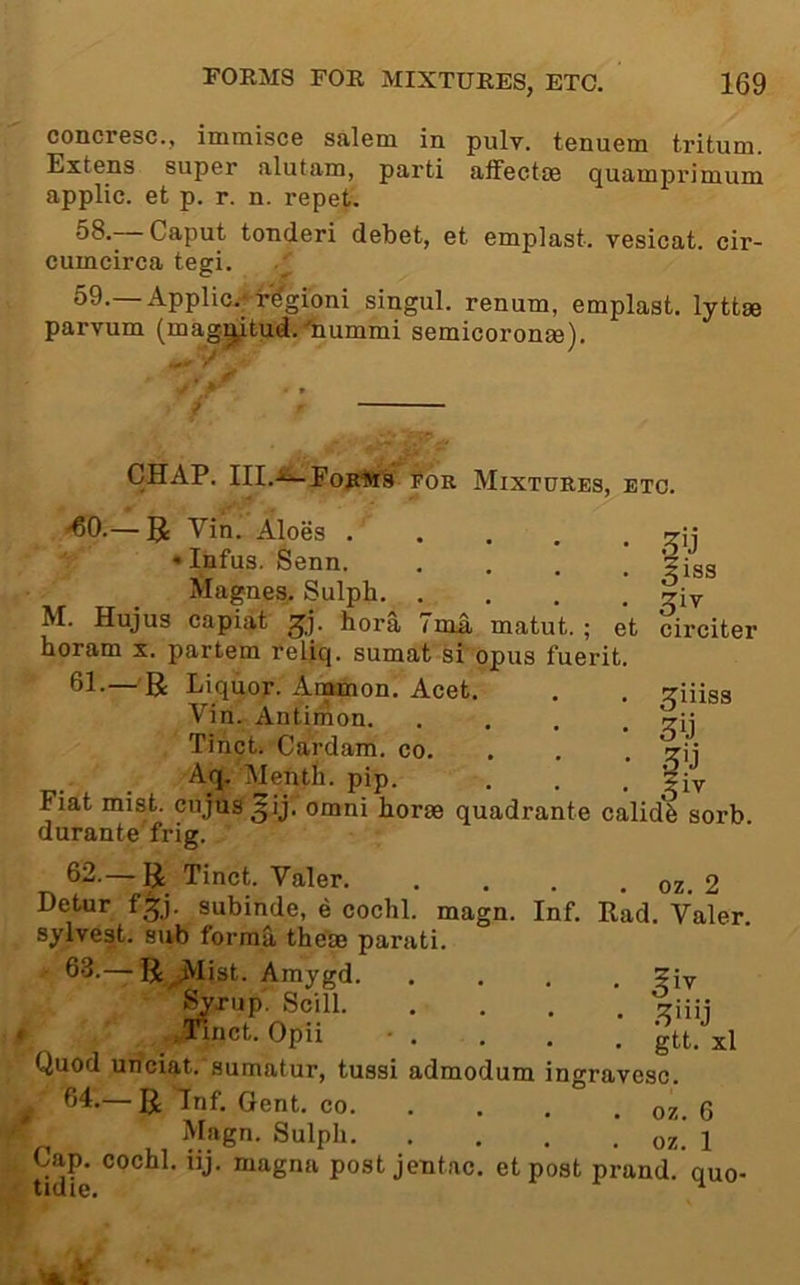 FORMS FOR MIXTURES, ETC. 169
concresc., immisce salem in pulv. tenuem tritum.
Extens super alutam, parti affectæ quamprimum
applic. et p. r. n. repet.
58.—Caput tonderi debet, et emplast. vesicat. cir-
cumcirca tegi.
59.—Applic. regioni singul. renum, emplast. lyttæ
parvum (magnitud. nummi semicoronæ).
CHAP. III.—Forms for Mixtures, etc.
60.—℞ Vin. Aloës . . . . . ʒij
Infus. Senn. . . . . ℥iss
Magnes. Sulph. . . . . ʒiv
M. Hujus capiat ʒj. horâ 7mâ matut. ; et circiter
horam x. partem reliq. sumat si opus fuerit.
61.—℞ Liquor. Ammon. Acet. . . ʒiiiss
Vin. Antimon. . . . . ʒij
Tinct. Cardam. co. . . . ʒij
Aq. Menth. pip. . . . ℥iv
Fiat mist. cujus ℥ij. omni horæ quadrante calidè sorb.
durante frig.
62.—℞ Tinct. Valer. . . . . oz. 2
Detur fʒj. subinde, è cochl. magn. Inf. Rad. Valer.
sylvest. sub formâ theæ parati.
63.—℞ Mist. Amygd. . . . . ℥iv
Syrup. Scill. . . . . ʒiiij
Tinct. Opii . . . . gtt. xl
Quod unciat. sumatur, tussi admodum ingravesc.
64.—℞ Inf. Gent. co. . . . . oz. 6
Magn. Sulph. . . . . oz. 1
Cap. cochl. iij. magna post jentac. et post prand. quo-
tidie.